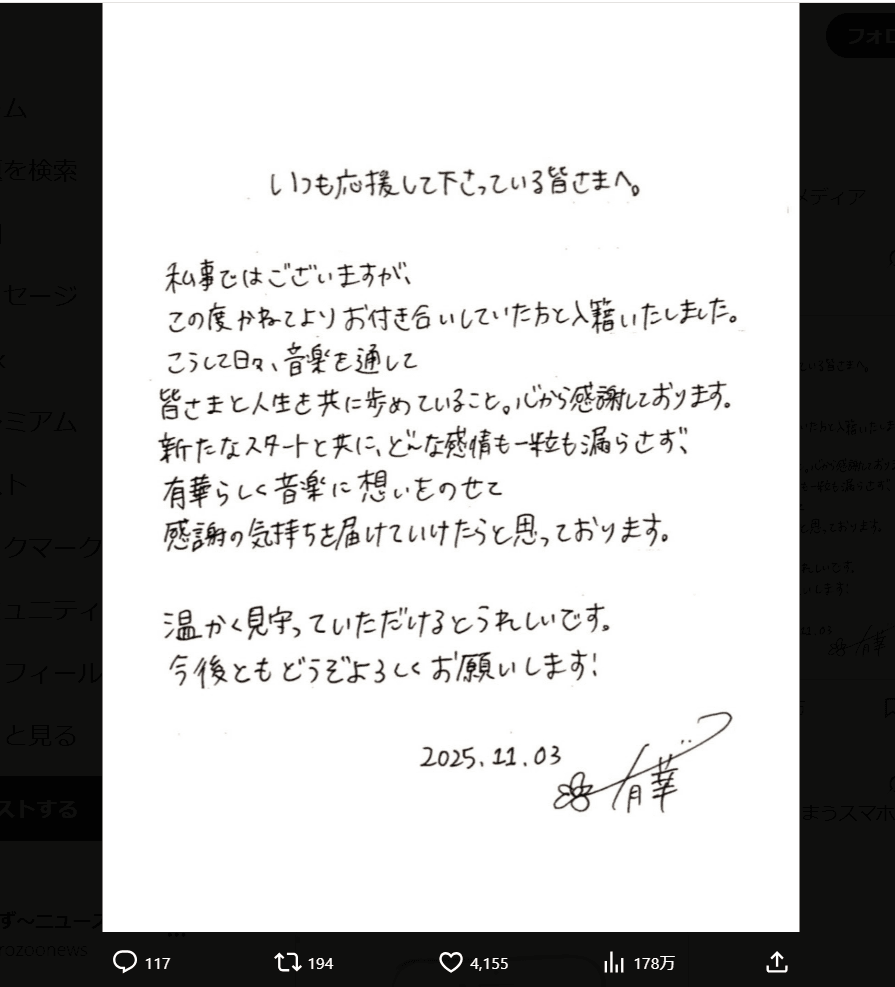 いつも応援して下さっている皆さまへ。
私事ではございますが、
この度かねてよりお付き合いしていた方と入籍いたしました。
こうして日々、音楽を通して
皆さまと人生を共に歩めていること。心から感謝しております。
新たなスタートと共に、どんな感情も一粒も漏らさず、
有華らしく音楽に想いをのせて
感謝の気持ちを届けていけたらと思っております。
温かく見守っていただけるとうれしいです。
今後ともどうぞよろしくお願いします!
2025.11.03
有華
117 194 4,155 178万
フォロ
ム
を検索
セージ
ミアム
ト
クマーク
ユニティ
フィール
と見る
ストする
ず〜ニュース
rozoonews
メディア
まうスマホ